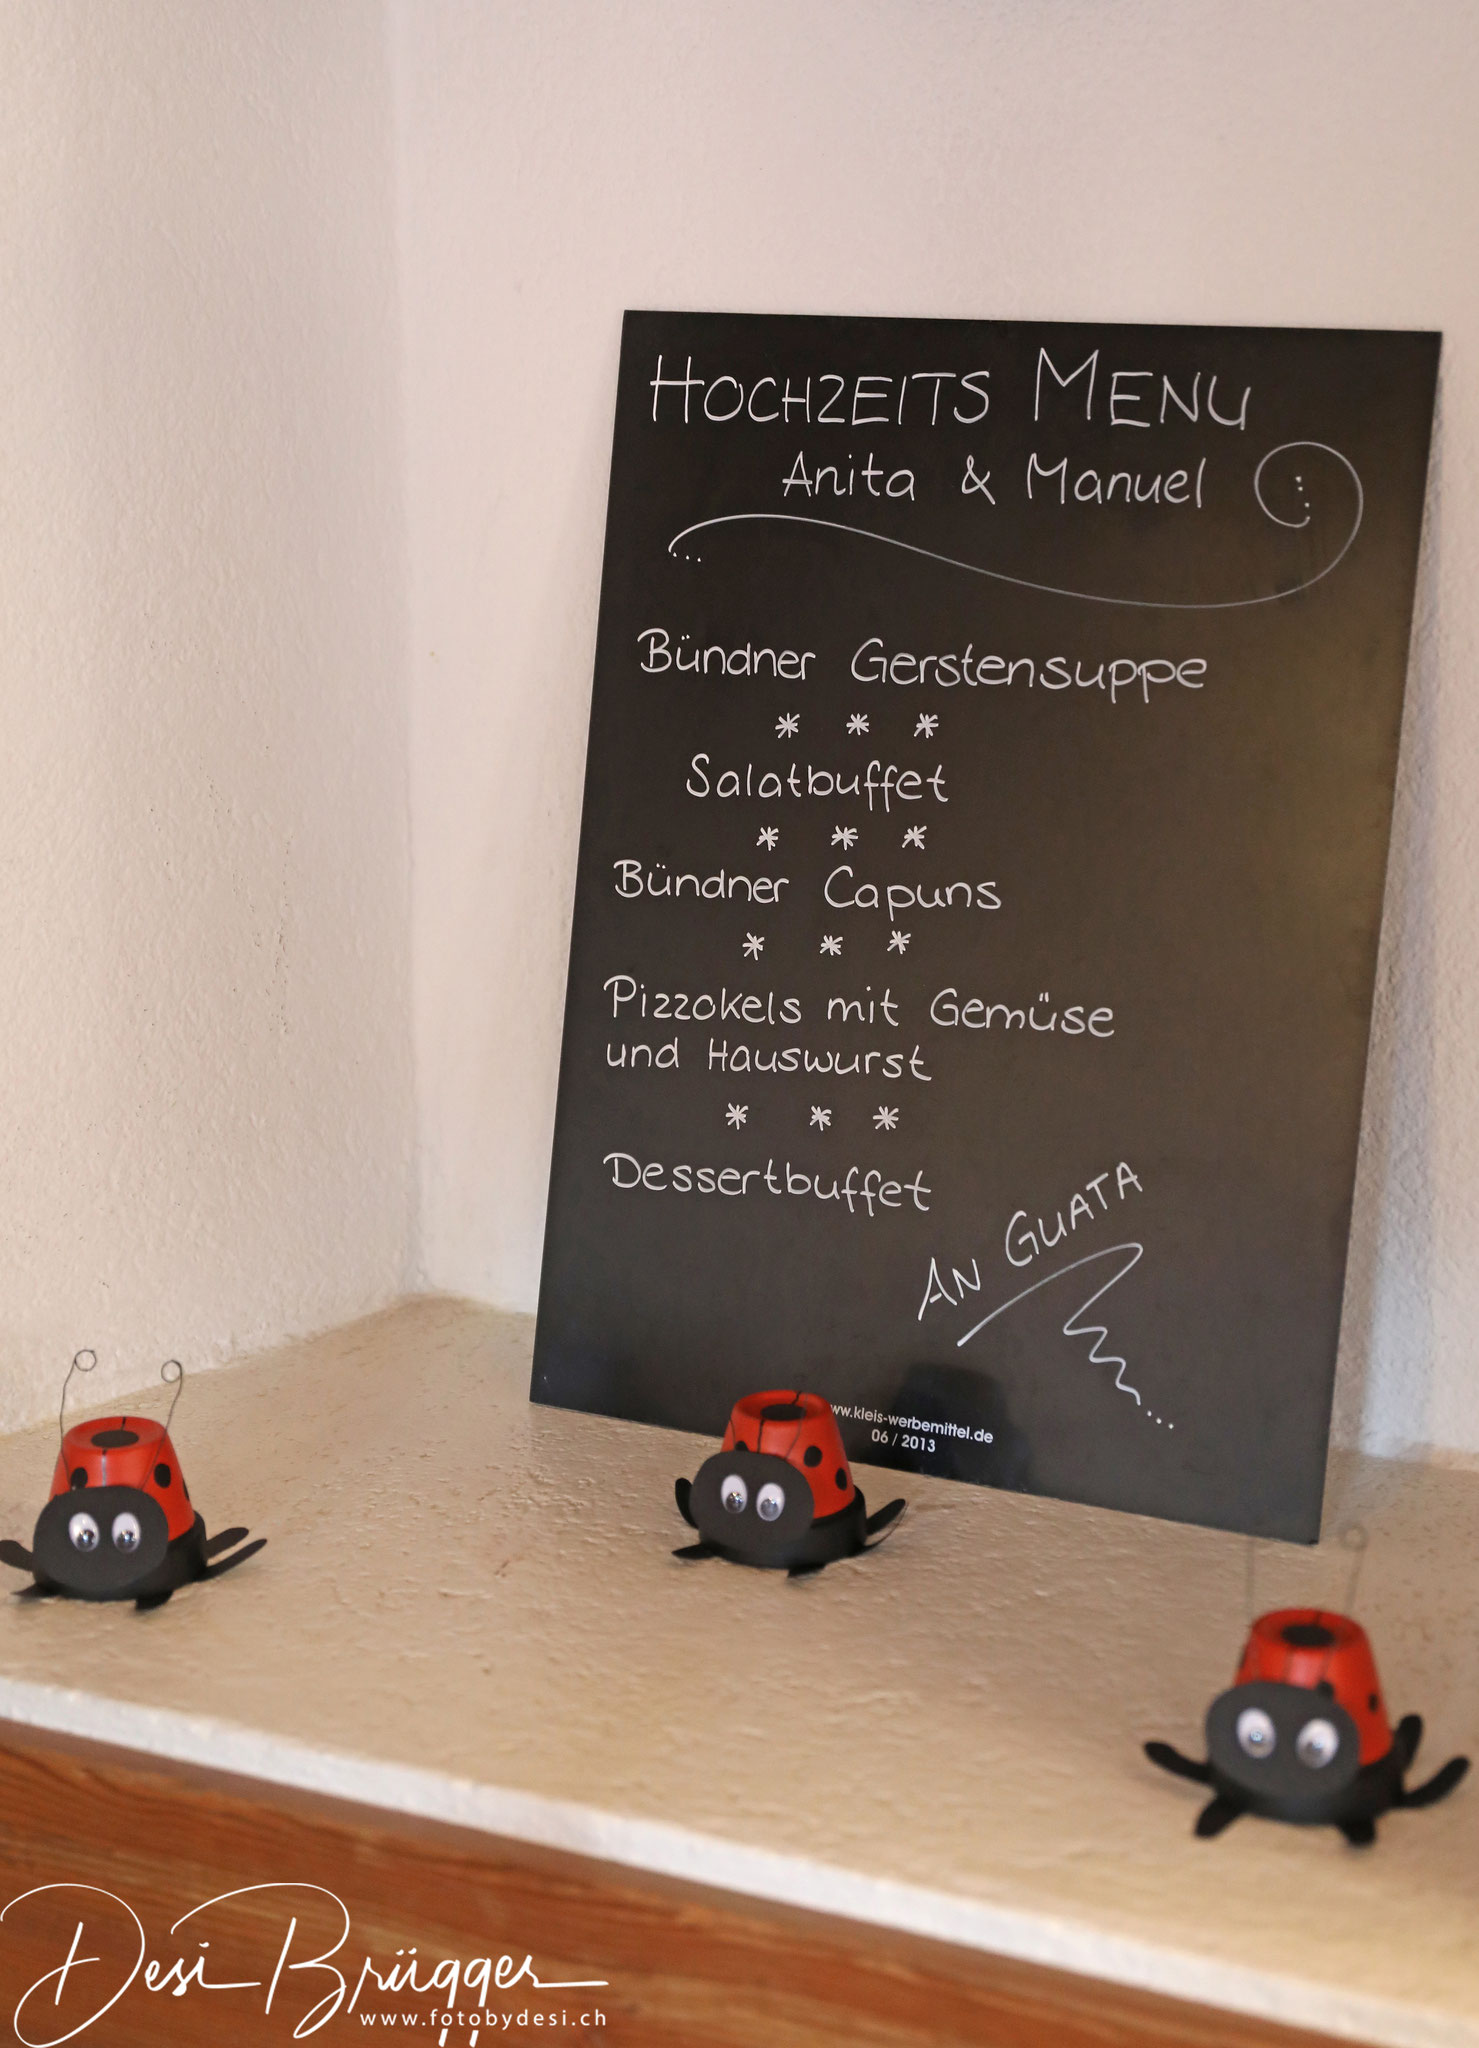 HOCHZEITS MENU
Anita & Manuel
Bündner Gerstensuppe
* * *
Salatbuffet
* * *
Bündner Capuns
* * *
Pizzokels mit Gemüse
und Hauswurst
* * *
Dessertbuffet
AN GUATA
...
www.kleis-werbemittel.de
06 / 2013
Desi Brügger
www.fotobydesi.ch